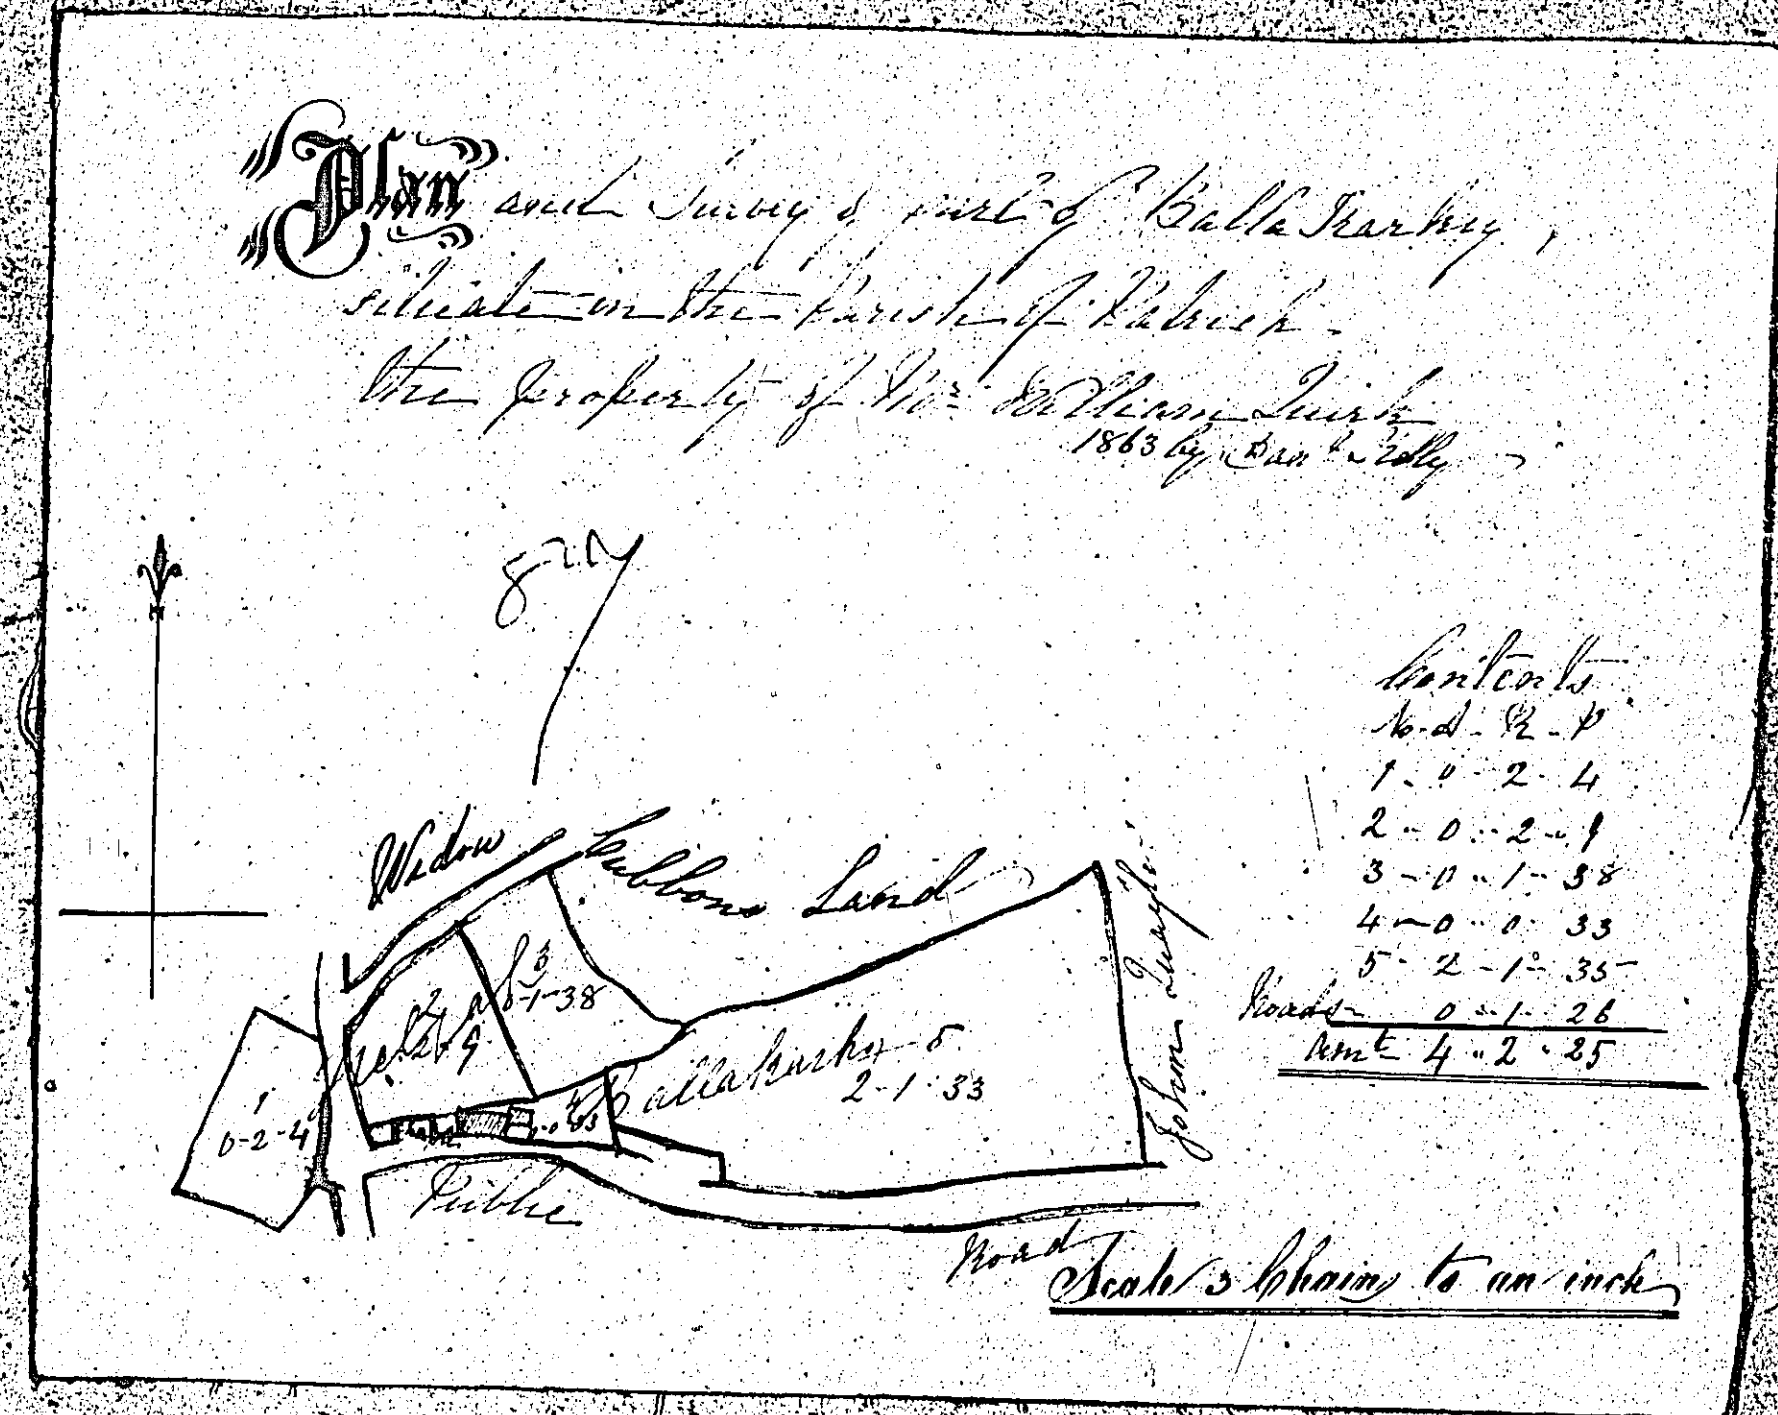 Plan and Survey of part of Balla Karkey,
situate in the Parish of Patrick.
the property of Mr. William Quirk
1863 by Danl. Kelly
Contents
No - A - R - P
1 - 0 - 2 - 4
2 - 0 - 2 - 9
3 - 0 - 1 - 38
4 - 0 - 0 - 33
5 - 2 - 1 - 35
Roads - 0 - 1 - 26
Amt 4 - 2 - 25
Widow Cubbons Land
John Quayle
3
0-1-38
2
0-2-9
part of
Ballakarkey 5
2-1-33
1
0-2-4
4
0-0-33
Public
Road
Scale 3 Chains to an inch